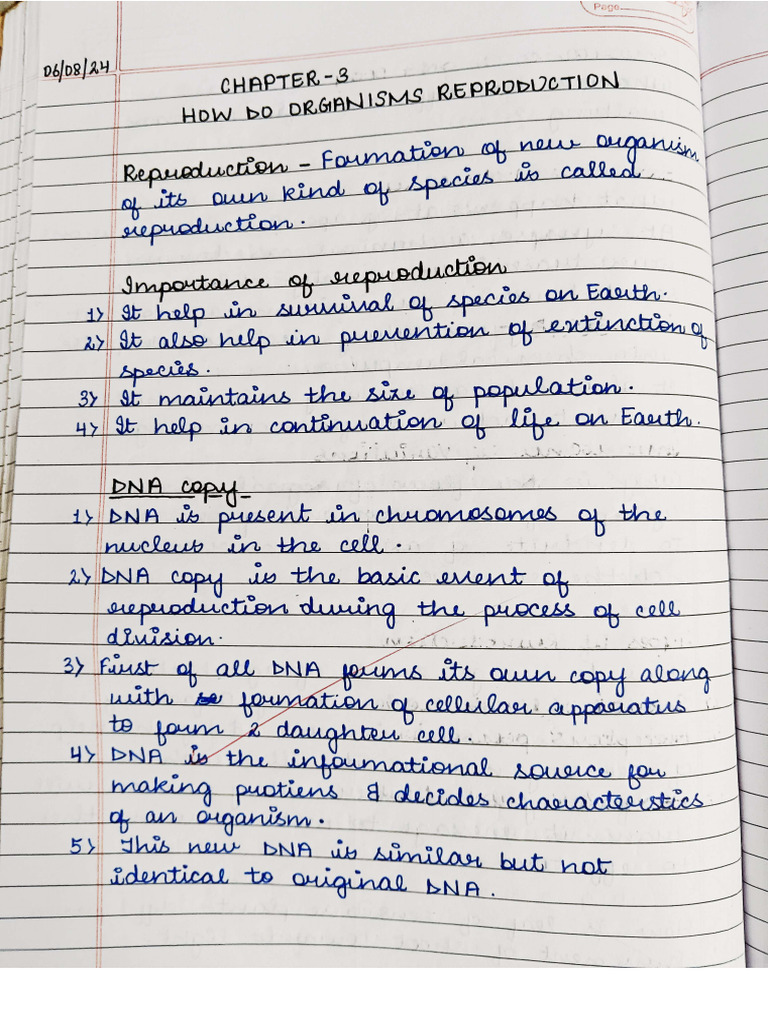 Page
06/08/24
CHAPTER-3
HOW DO ORGANISMS REPRODUCTION
Reproduction - Formation of new organism
of its own kind of species is called
reproduction.
Importance of reproduction
1) It help in survival of species on Earth.
2) It also help in prevention of extinction of
species.
3) It maintains the size of population.
4) It help in continuation of life on Earth.
DNA copy -
1) DNA is present in chromosomes of the
nucleus in the cell.
2) DNA copy is the basic event of
reproduction during the process of cell
division.
3) First of all DNA forms its own copy along
with formation of cellular apparatus
to form 2 daughter cell.
4) DNA is the informational source for
making protiens & decides characteristics
of an organism.
5) This new DNA is similar but not
identical to original DNA.